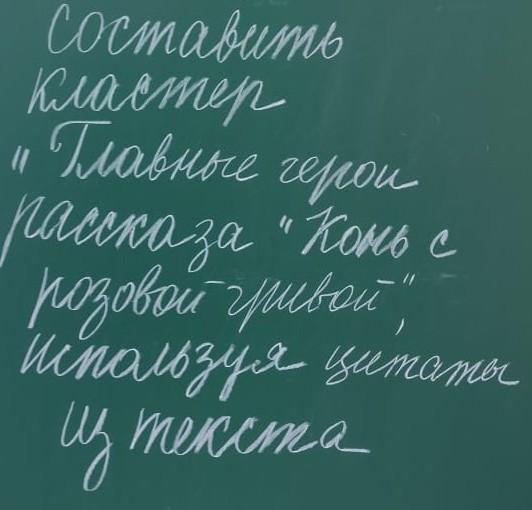 Составить
кластер
"Главные герои
рассказа "Конь с
розовой гривой",
используя цитаты
из текста